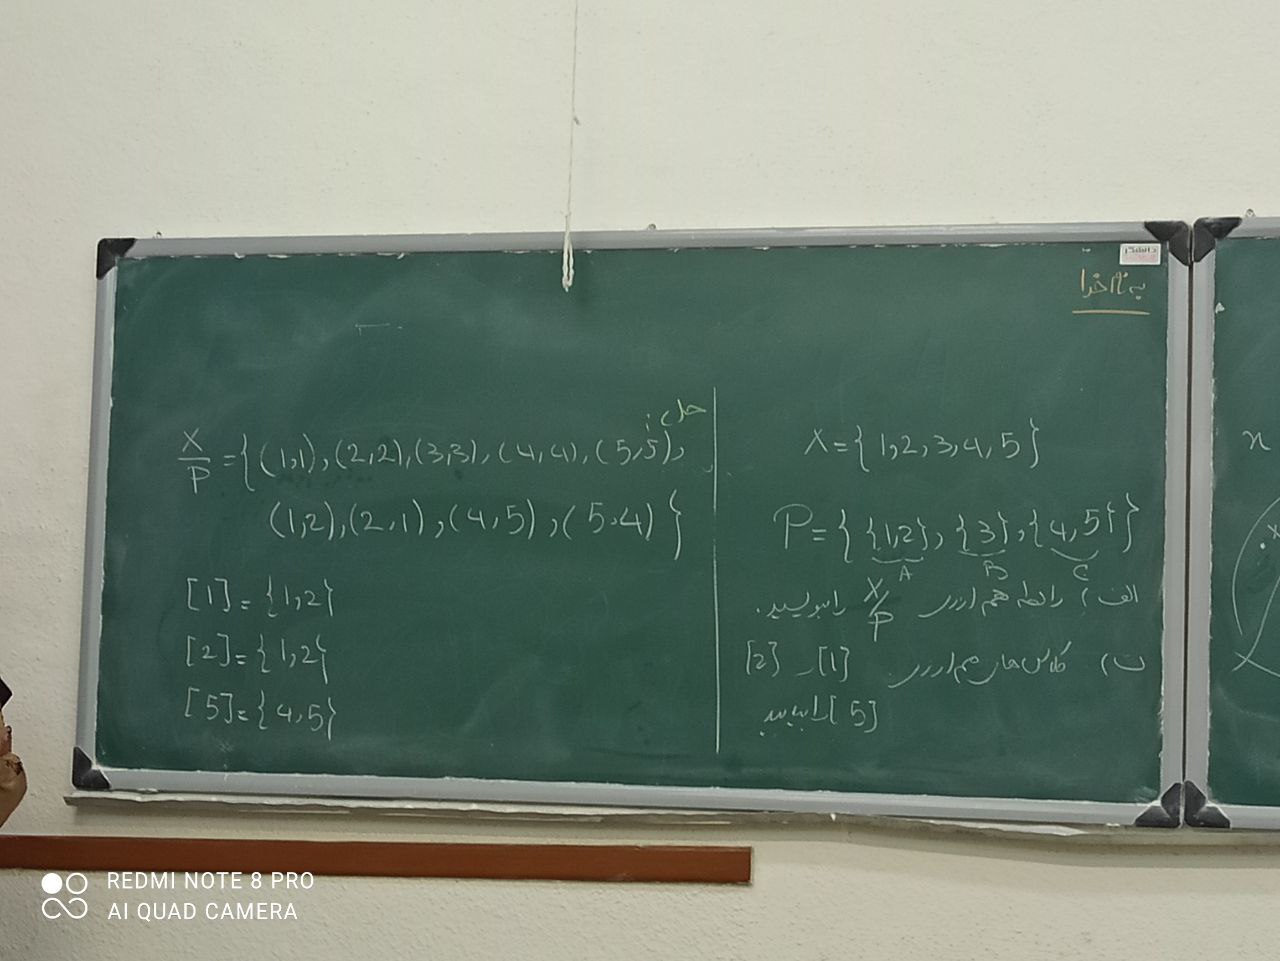 به نام خدا
X={1,2,3,4,5}
P={{1,2},{3},{4,5}}
A B C
الف) رابطه هم ارزی X/P را بنویسید.
ب) کلاس های هم ارزی [1] و [2]
[5] را بیابید
حل:
X/P={(1,1),(2,2),(3,3),(4,4),(5,5),
(1,2),(2,1),(4,5),(5,4)}
[1]={1,2}
[2]={1,2}
[5]={4,5}
x
x
x
REDMI NOTE 8 PRO
AI QUAD CAMERA